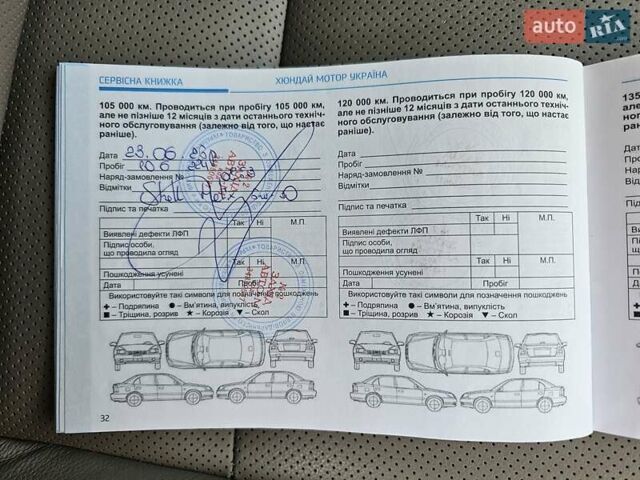 auto RIA.com
СЕРВІСНА КНИЖКА
ХЮНДАЙ МОТОР УКРАЇНА
105 000 км. Проводиться при пробігу 105 000 км,
але не пізніше 12 місяців з дати останнього техніч-
ного обслуговування (залежно від того, що настає
раніше).
Дата 23.06
Пробіг
Наряд-замовлення №
Відмітки Shell Helix 5w-30
Підпис та печатка
Так Ні М.П.
Виявлені дефекти ЛФП
Підпис особи,
що проводила огляд
Так Ні М.П.
Пошкодження усунені
Дата Пробіг
Використовуйте такі символи для позначення пошкоджень
+ – Подряпина ● – Вм'ятина, випуклість
■ – Тріщина, розрив ★ – Корозія ▼ – Скол
32
120 000 км. Проводиться при пробігу 120 000 км,
але не пізніше 12 місяців з дати останнього техніч-
ного обслуговування (залежно від того, що настає
раніше).
Дата
Пробіг
Наряд-замовлення №
Відмітки
Підпис та печатка
Так Ні М.П.
Виявлені дефекти ЛФП
Підпис особи,
що проводила огляд
Так Ні М.П.
Пошкодження усунені
Дата Пробіг
Використовуйте такі символи для позначення пошкоджень
+ – Подряпина ● – Вм'ятина, випуклість
■ – Тріщина, розрив ★ – Корозія ▼ – Скол
135
але
ног
ран